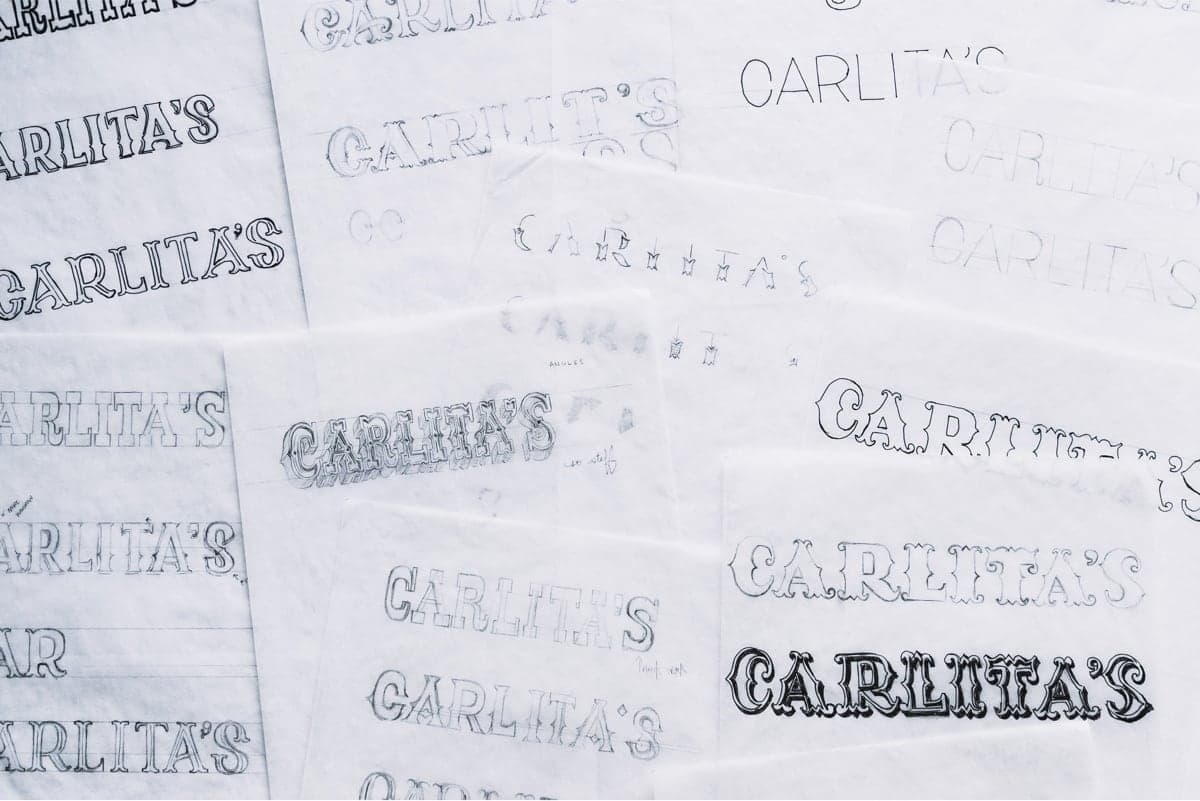 ARLITA'S
ARLITA'S
CARLITA'S
CARLITA
CARLIT'S
CC
CARLITA'S
CARLIT
ANGLES
CARLITA'S
CARLITA'S
CARLITA'S
CARLITA'S
CARLITA'S
ARLITA'S
ARLITA'S
AR
ARLITA'S
CARLITA'S
CARLITA'S
CARLITA'S
CARLITA'S